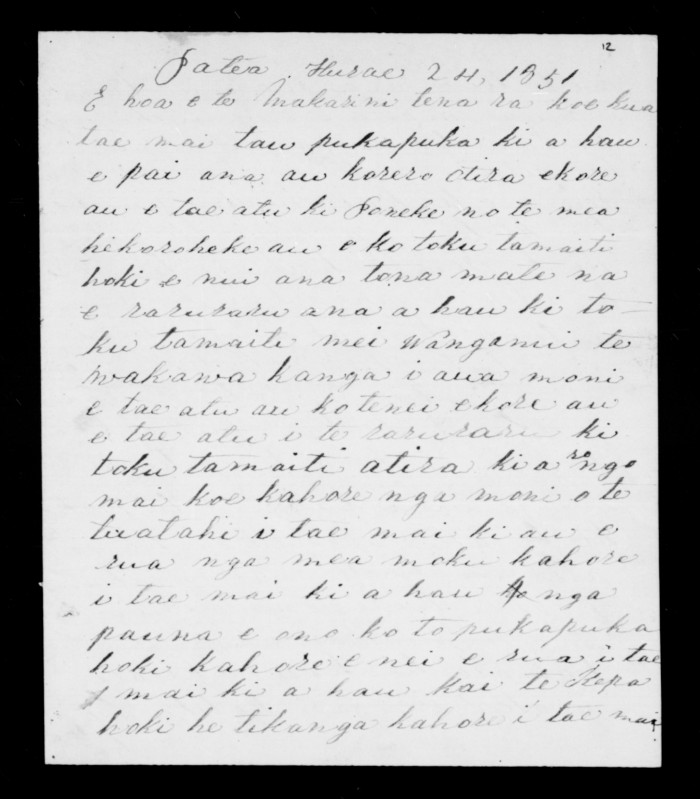 12
Patea Hurae 24, 1851
E hoa e te Makarini tena ra koe kua
tae mai tau pukapuka ki a hau
e pai ana au korero otira ekore
au e tae atu ki Poneke no te mea
hekoroheke au e ko toku tamaiti
hoki e nui ana tona mate na
e raruraru ana a hau ki to-
ku tamaiti mei Wanganui te
wakawa kanga i aua moni
e tae atu au ko tenei ekore au
e tae atu i te raruraru ki
toku tamaiti atira ki a rongo
mai koe kahore nga moni o te
tuatahi i tae mai ki au e
rua nga mea moku kahore
i tae mai ki a hau nga
pauna e ono ko to pukapuka
hoki kahore e nei e rua i tae
mai ki a hau kai te Kepa
hoki he tikanga kahore i tae mai